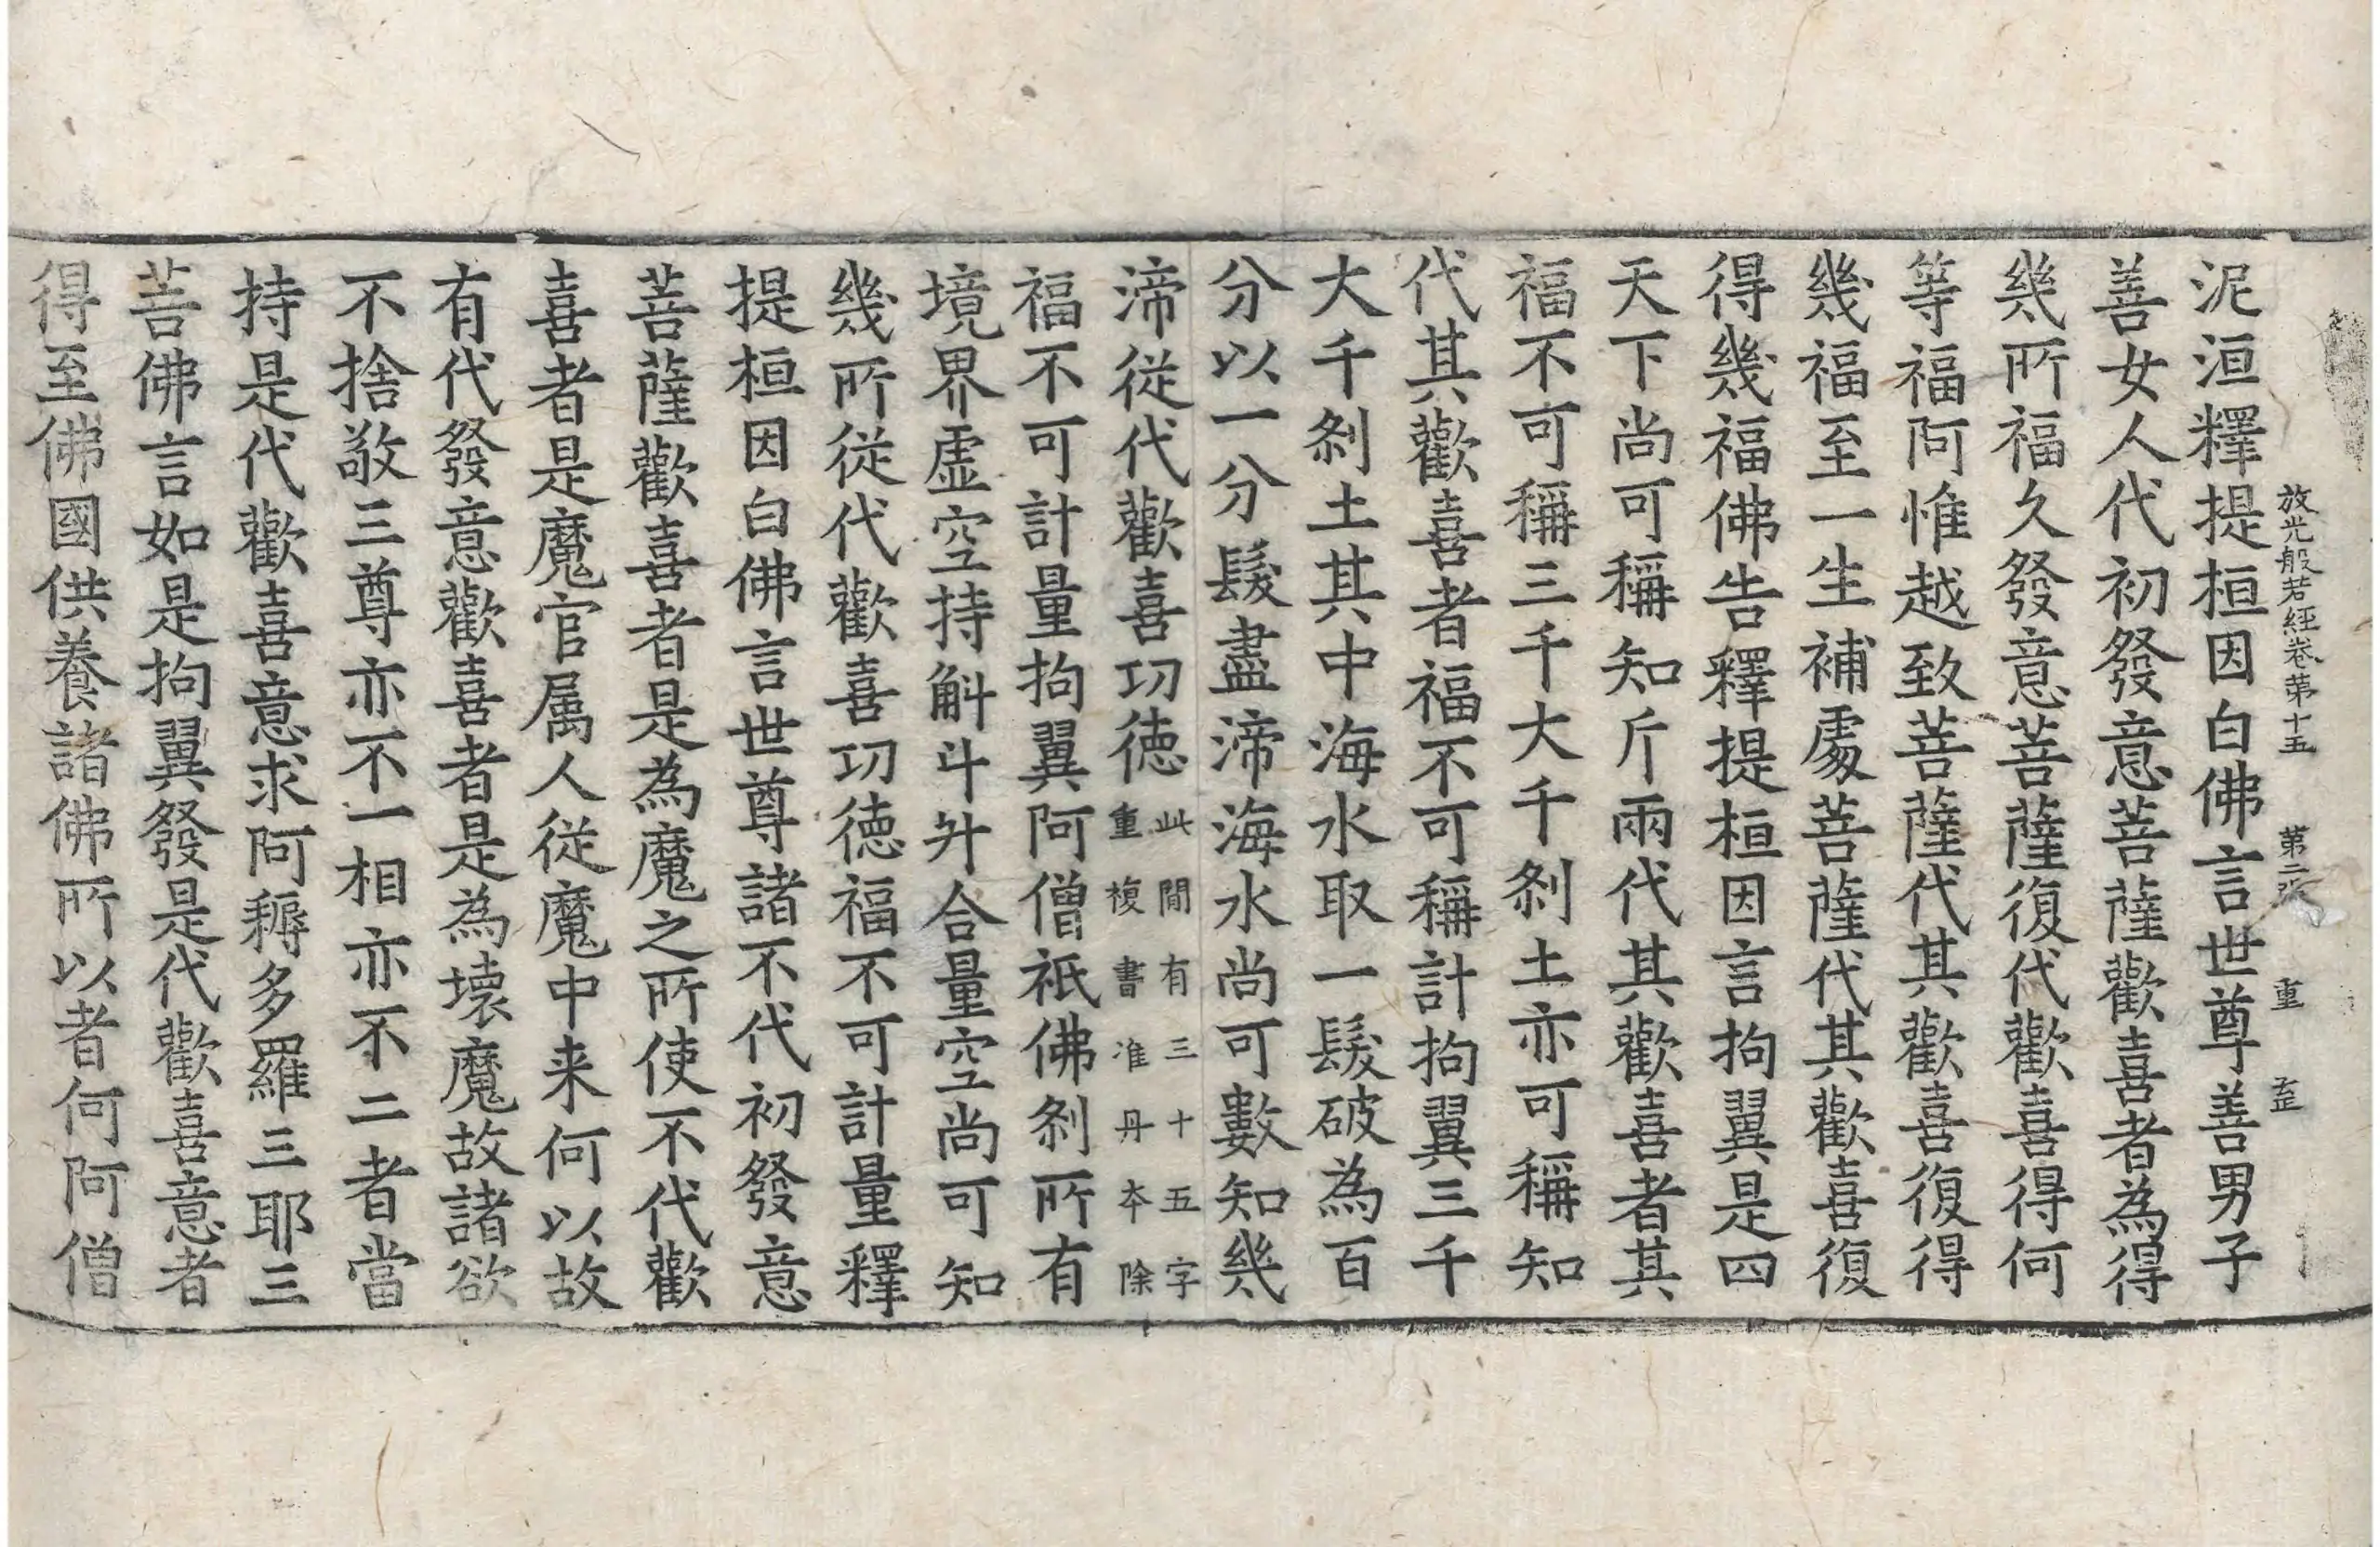 放光般若經卷第十五 第二張 重
泥洹釋提桓因白佛言世尊善男子
善女人代初發意菩薩歡喜者為得
幾所福久發意菩薩復代歡喜得何
等福阿惟越致菩薩代其歡喜復得
幾福至一生補處菩薩代其歡喜復
得幾福佛告釋提桓因言拘翼是四
天下尚可稱知斤兩代其歡喜者其
福不可稱三千大千剎土亦可稱知
代其歡喜者福不可稱計拘翼三千
大千剎土其中海水取一髮破為百
分以一分髮盡渧海水尚可數知幾
渧從代歡喜功德此間有三十五字重複書准丹本除
福不可計量拘翼阿僧祇佛剎所有
境界虛空持斛斗升合量空尚可知
幾所從代歡喜功德福不可計量釋
提桓因白佛言世尊諸不代初發意
菩薩歡喜者是為魔之所使不代歡
喜者是魔官属人從魔中来何以故
有代發意歡喜者是為壞魔故諸欲
不捨敬三尊亦不一相亦不二者當
持是代歡喜意求阿耨多羅三耶三
菩佛言如是拘翼發是代歡喜意者
得至佛國供養諸佛所以者何阿僧